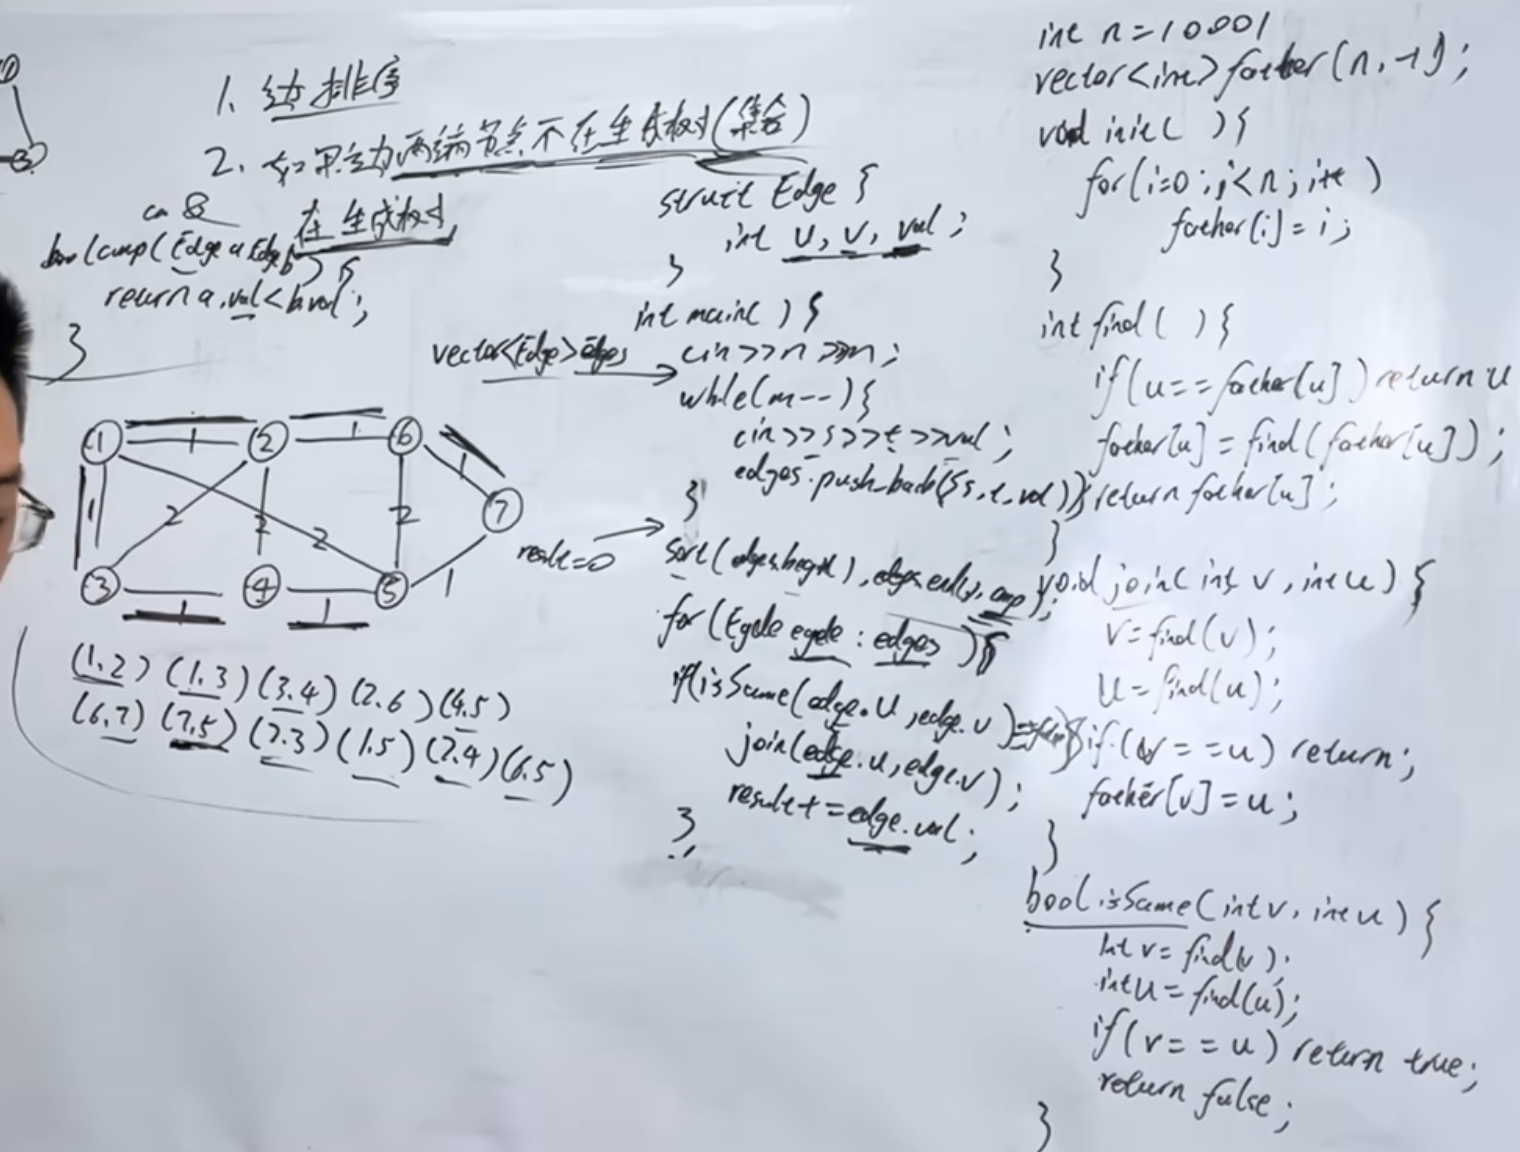 1、边排序
2、如果边两端节点不在生成树(集合)
在生成树
bool cmp(Edge a Edge b) {
return a.val<b.val;
}
1
2
6
1
1
1
1
7
2
2
2
2
3
4
5
1
1
1
(1.2) (1.3) (3.4) (2.6) (4.5)
(6.7) (7.5) (2.3) (1.5) (2.4) (6.5)
struct Edge {
int u, v, val;
}
int main( ) {
vector<Edge>edges
cin>>n>>m;
while(m--){
cin>>s>>t>>val;
edges.push_back({s,t,val});
}
result=0
sort(edges.begin(), edges.end(), cmp);
for (Egde egde : edges ){
if(isSame(edge.u, edge.v)==false){
join(edge.u, edge.v);
result+=edge.val;
}
}
int n=10001
vector<int>father(n,-1);
void init( ){
for(i=0;i<n;i++ )
father[i]=i;
}
int find( ){
if(u==father[u])return u
father[u]=find(father[u]);
return father[u];
}
void join(int v,int u) {
v=find(v);
u=find(u);
if(v==u) return;
father[v]=u;
}
bool isSame(int v, int u) {
int v=find(v);
int u=find(u);
if(v==u) return true;
return false;
}